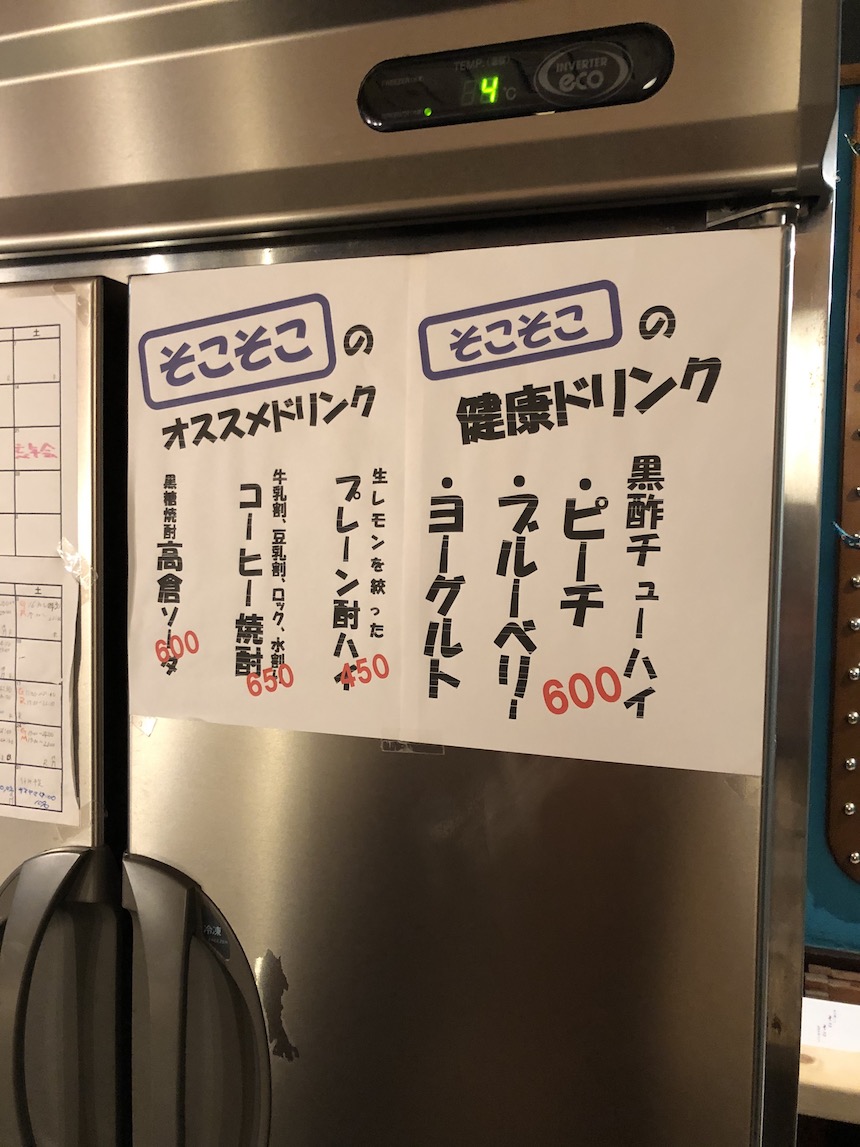 TEMP.(温度)
4℃
INVERTER
eco
そこそこの
オススメドリンク
生レモンを絞った
プレーン酎ハイ
450
牛乳割、豆乳割、ロック、水割、
コーヒー焼酎
650
黒糖焼酎高倉ソーダ
600
そこそこの
健康ドリンク
黒酢チューハイ
・ピーチ
・ブルーベリー
・ヨーグルト
600
土
土
冷凍